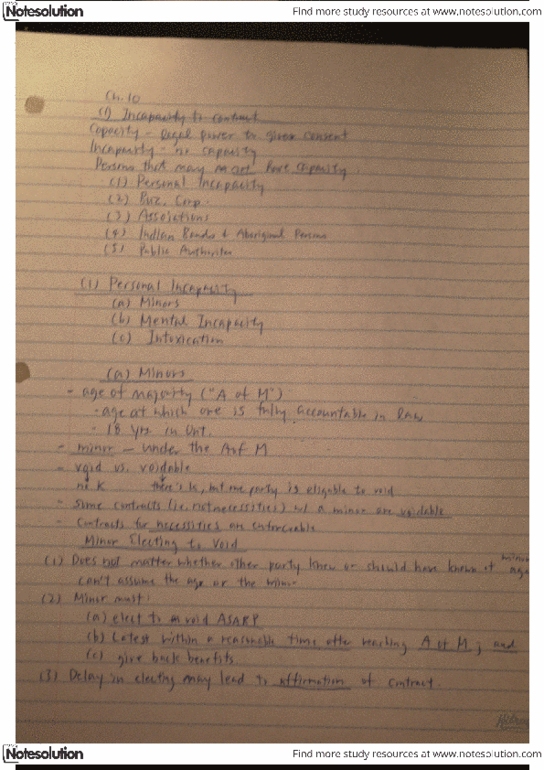 Notesolution
Find more study resources at www.notesolution.com
Ch. 10
(1) Incapacity to contract
Capacity - legal power to given consent
Incapacity - no capacity
Persons that may not have capacity.
(1) Personal Incapacity
(2) Buz. Corp.
(3) Associations
(4) Indian Bands & Aboriginal Persons
(5) Public Authorities
(1) Personal Incapacity
(a) Minors
(b) Mental Incapacity
(c) Intoxication
(a) Minors
- age of majority ("A of M")
- age at which one is fully accountable in law
- 18 yrs in Ont.
- minor - under the A of M
- void vs. voidable
no K there's K, but one party is eligable to void
- Some contracts (i.e. not necessities) w/ a minor are voidable
- Contracts for necessities are enforceable
Minor Electing to Void
(1) Does not matter whether other party knew or should have known of minor age
can't assume the age or the
(2) Minor must:
(a) elect to avoid ASARP
(b) Latest within a reasonable time after reaching A of M; and
(c) give back benefits.
(3) Delay in electing may lead to affirmation of contract.
Notesolution
Find more study resources at www.notesolution.com